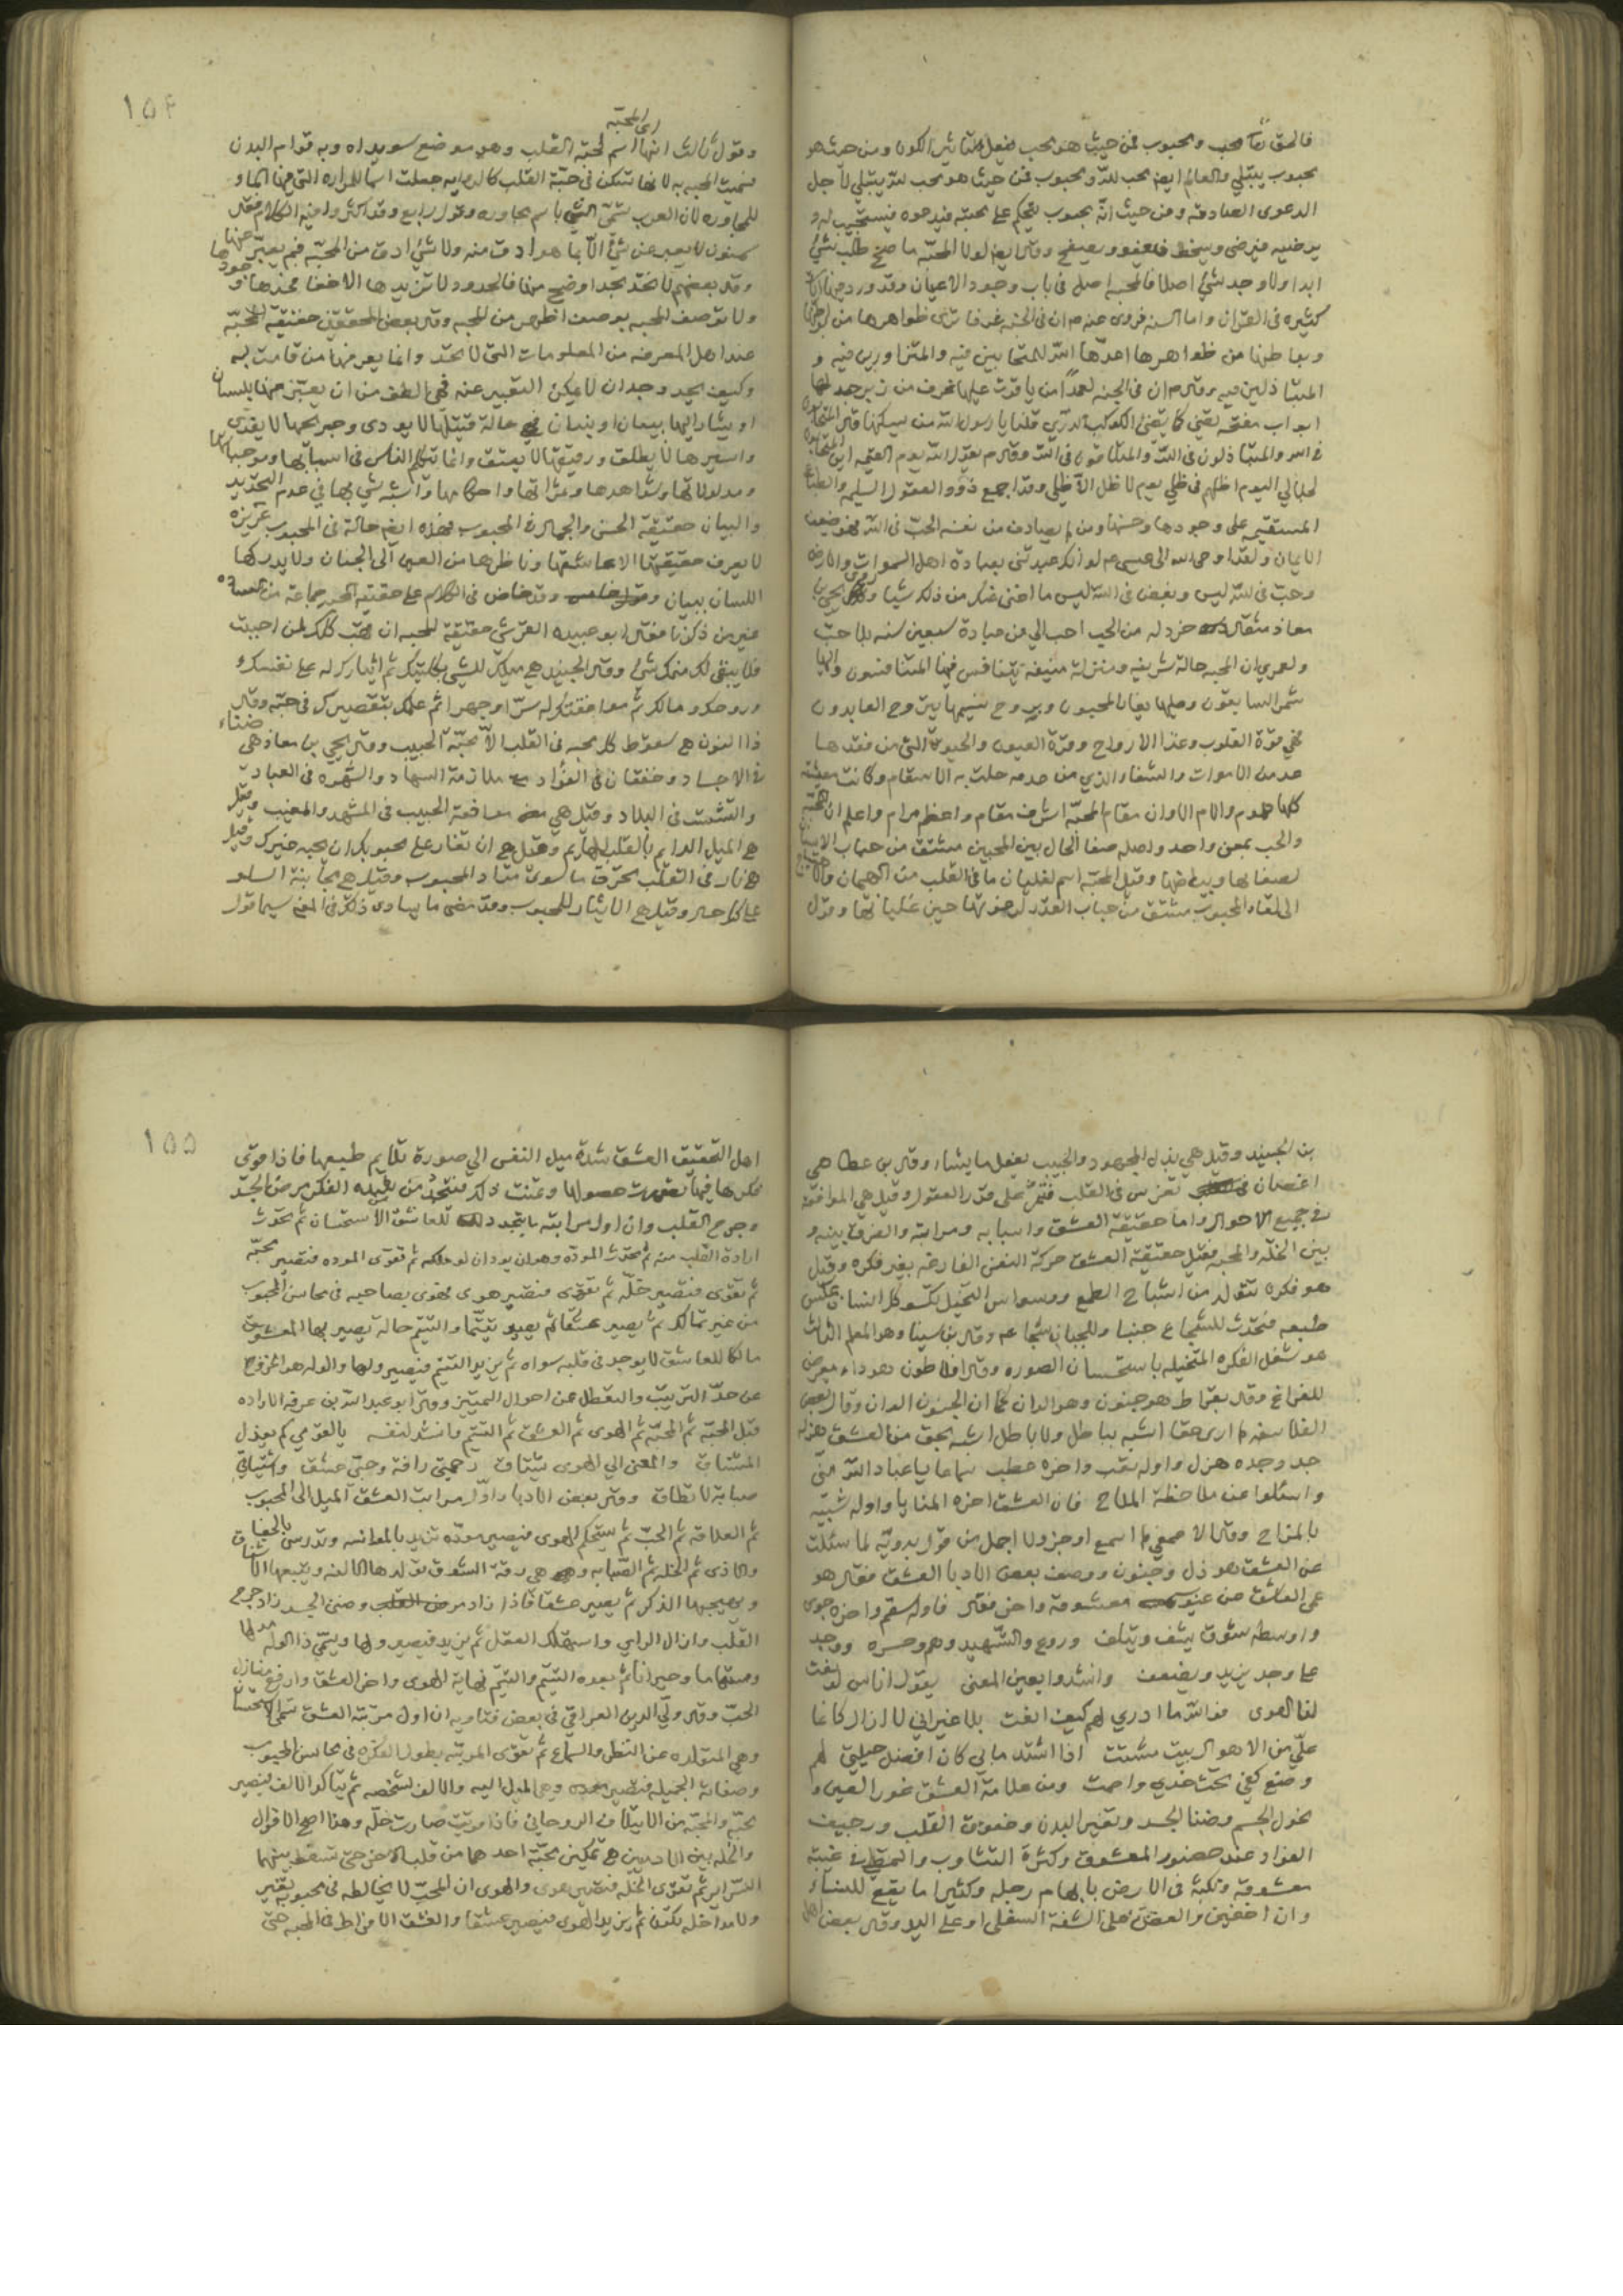 فالحق تعا محب ومحبوب فمن حيث هو محب ينفعل لتاثير الكون ومن حيث هو
محبوب يبتلي والعالم ايضا محب لله ومحبوب فمن حيث هو محب لله يبتلي لاجل
الدعوى الصادقة ومن حيث انه محبوب يتحكم على محبه فيدعوه فيستجيب له و
يرضيه فيرضى ويسخط فيعفو ويصفح وقال ايضا لولا المحبة ما صح طلب شئ
ابدا ولا وجد شئ اصلا فالمحبة اصل في باب وجود الاعيان وقد ورد فيها ايات
كثيره في القران واما السنه فروى عنه ص ان في الجنة غرفا ترى ظواهرها من بواطنها
وبواطنها من ظواهرها اعدها الله للمتحابين فيه والمتزاورين فيه و
المتباذلين فيه وقال ص ان في الجنه لعمدا من ياقوت عليها غرف من زبرجد لها
ابواب مفتحه تضئ كما يضئ الكوكب الدري قلنا يا رسول الله من يسكنها قال المتحابون
في الله والمتباذلون في الله والمتلاقون في الله وقال ص يقول الله يوم القيمه اين المتحابون
لجلالي اليوم اظلهم في ظلي يوم لا ظل الا ظلي وقد اجمع ذوو العقول السليمه والطباع
المستقيمه على وجودها وحسنها ومن لم يصادف من نفسه الحب في الله فهو ضعيف
الايمان ولقد اوحى الله الى عيسى عم لو انك عبدتني بعبادة اهل السموات والارض
وحب في لله ليس وبغض في الله ليس ما اغنى عنك من ذلك شيا وقال يحيى بن
معاذ مثقال خردله من الحب احب الي من عبادة سبعين سنه بلا حب
ولعمري ان المحبه حالة شريفه ومنزلة منيفه يتنافس فيها المتنافسون واليها
شمر السابقون وعليها تفانا المحبون وبروح نسيمها يتروح العابدون
فهي قوة القلوب وغذا الارواح وقرة العيون والحيوة التي من فقدها
عد من الاموات والشفاء الذي من عدمه حلت به الاسقام وكانت معيشته
كلها هموم والام الا وان مقام المحبة اشرف مقام واعظم مرام واعلم ان المحبة
والحب بمعن واحد واصله صفا الحال بين المحبين مشتق من حباب الاسنان
لصفائها وبياضها وقيل المحبة اسم لغليان ما في القلب من الهيمان والاهتياج
الى لقاء المحبوب مشتق من حباب القدر لرغوتها حين غليانها وقول
١٥٤
وقول ثالث انها اى المحبه اسم لحبة القلب وهو موضع سويداه وبه قوام البدن
فسميت المحبه به لانها تسكن في حبة القلب
للمجاوره لان العرب تسمي الشئ باسم مجاوره وقول رابع وقد اكثروا فيه الكلام فقال
سمنون لا يعبر عن شئ الا بما هو ادق منه ولا شئ ادق من المحبة فبم يعبر عنها
وقال بعضهم لا تحد بحد اوضح منها فالحدود لا تزيدها الا خفا فحدها وجودها
ولا توصف المحبه بوصف اظهر من المحبه وقال بعض المحققين حقيقة المحبة
عند اهل المعرفه من المعلومات التي لا تحد وانما يعرفها من قامت به
وكيف يحد وجدان لا يمكن التعبير عنه فهي الطف من ان يعبر عنها بلسان
او يشار اليها ببيان او بنيان حالة قتيلها لا يودى وجريحها لا يفدى
واسيرها لا يطلق ورقيقها لا يعتق وانما تكلم الناس في اسبابها وموجباتها
ومدلولاتها وشواهدها وثمراتها واحكامها واشبه شي بها في عدم التحديد
والبيان حقيقة الحسن والجمال في المحبوب فهذه ايضا حالة في المحبوب غريزه
لا يعرف حقيقتها الا عاشقها وناظرها من العين الى الجنان ولا يدركها
اللسان ببيان وقد خاض في الكلام على حقيقه المحبه جماعة من
غير من ذكرنا فقال ابو عبيده القرشي حقيقة المحبه ان تهب كلك لمن احببت
فلا يبقى لك منك شئ وقال الجنيد هي ميلك للشي بكليتك ثم ايثارك له على نفسك و
وروحك ومالك ثم موافقتك له سرا وجهرا ثم علمك بتقصيرك في حبه وقال
ذا النون هي سقوط كل محبه في القلب الا محبة الحبيب وقال يحيى بن معاذ هي ضناء
في الاجساد وخفقان في الفؤاد ملازمة السهاد والشهره في العباد
والتشتت في البلاد وقيل هي موافقة الحبيب في المشهد والمغيب وقيل
هي الميل الدايم بالقلب الهايم وقيل هي ان تغار على محبوبك ان يحبه غيرك وقيل
هي نار في القلب تحرق ما سوى مراد المحبوب وقيل هي مجانبة السلو
على كل حال وقيل هي الايثار للمحبوب وقد مضى ما يساوى ذلك في المعنى سيما قول
بن الجنيد وقيل هي بذل المجهود والحبيب يفعل ما يشاء وقال بن عطا هي
اغصان تغرس في القلب فتثمر على قدر العقول وقيل هي الموافقة
في جميع الاحوال واما حقيقة العشق واسبابه ومراتبه والفرق بينه و
بين الخلة والمحبه فقيل حقيقة العشق حركة النفس الفارغه بغير فكره وقيل
هو فكره تتولد من اشباح الطمع ووسواس التخيل يكسو كل انسان عكس
طبعه فتحدث للشجاع جبنا وللجبان شجاعه وقال بن سينا وهو المعلم الثالث
هو شغل الفكره المتخيله باستحسان الصوره وقال افلاطون هو داء يعرض
للفراغ وقال بقراط هو جنون وهو الوان كما ان الجنون الوان وقال بعض
الفلاسفه لم ارى حقا اشبه بباطل ولا باطل اشبه بحق من العشق هزله
جد وجده هزل واوله لعب واخره عطب سماعا يا عباد الله مني
واسئلوا عن ملاحظة الملاح فان العشق اخره المنايا واوله شبيه
بالمزاح وقال الاصمعي لم اسمع اوجز ولا اجمل من قول بدويه لما سئلت
عن العشق هو ذل وجنون ووصف بعض الادبا العشق فقال هو
عمى العاشق عن عيوب معشوقه واخر فقال فاوله سقم واخره جوى
واوسطه شوق يشف ويتلف وروع وتسهيد وهم وحسره ووجد
على وجد يزيد ويضعف وانشدوا بعين المعنى يقول اناس لو نعت
لنا الهوى فو الله ما ادري لهم كيف انعت بلا غير اني لا ازال كانما
علي من الاهوال بيت مشتت اذا اشتد ما بي كان افضل حيلتي لهم
وضع كفي تحت خدي واصمت ومن علامة العشق غور العين و
نحول الجسم وضنا الجسد وتغير البدن وخفوق القلب ورجيف
الفؤاد عند حضور المعشوق وكثرة التثاوب والتمطي في غيبة
معشوقه ونكبه في الارض بابهام رجله وكثيرا ما يقع للنساء
والعض على الشفة السفلى او على اليد وقال بعض اهل
١٥٥
اهل التحقيق العشق شدة ميل النفس الى صورة تلايم طبعها فاذا قوى
فكرها فيها تصورت حصولها وتمنت ذلك
وجرح القلب وان اول مراتبه ما يتجدد للعاشق الاستحسان ثم تحدث
ارادة القلب منه ثم تحدث المودة وهو ان يود ان لو ملكه ثم تقوى الموده فتصير محبة
ثم تقوى فتصير خلة ثم تقوى فتصير هوى فهوى بصاحبه في محاسن المحبوب
من غير تمالك ثم يصير عشقا ثم يصير تيتما والتيتم حالة يصير بها المعشوق
مالكا للعاشق لا يوجد في قلبه سواه ثم يزيد التيتم فيصير ولها والوله هو الخروج
عن حد الترتيب والتعطل عن احوال التمييز وقال ابو عبد الله بن عرفه الاراده
قبل المحبة ثم المحبة ثم الهوى ثم العشق ثم التيتم وانشد لنفسه يا لقومي كم يعذل
المشتاق والمعنى الى الهوى يشتاق رحمتى رافة وحبي عشق واشتياقي
صبابة لا تطاق وقال بعض الادبا واول مراتب العشق الميل الى المحبوب
ثم العلاقه ثم الحب ثم يستحكم الهوى فيصير موده تزيد بالموانسه وتدرس بالجفا
والاذى ثم الخله ثم الصبابه وهي رقة الشوق تولدها الالفه ويتبعها الاشفاق
ويهيجها الذكر ثم يصير عشقا فاذا زاد مرض القلب وضنى الجسد زاد جرح
القلب وازال الراي واستهلك العقل ثم يزيد فيصير ولها ويسمى ذا الوله مدلها
ومستهاما وحيرانا ثم بعده التيتم والتيتم نهاية الهوى واخر العشق وارفع منازل
الحب وقال ولي الدين العراقي في بعض فتاويه ان اول مرتبة العشق تسمى الاستحسان
وهي المتولده عن النظر والسماع ثم تقوى المرتبه بطول الفكره في محاسن المحبوب
وصفاته الجميله فتصير موده وهي الميل اليه والالف لشخصه ثم يتاكد الالف فيصير
محبة والمحبة من الايتلاف الروحاني فاذا قويت صارت خلة وهذا اصح الاقوال
والخله بين الادميين هي تمكين محبة احدهما من قلب الاخر حتى تسقط بينهما
السراير ثم تقوى الخلة فتصير هوى والهوى ان المحب لا يخالطه في محبوبه تغير
ولا مداخله تلون ثم يزيد الهوى فيصير عشقا والعشق الافراط في المحبه حتى